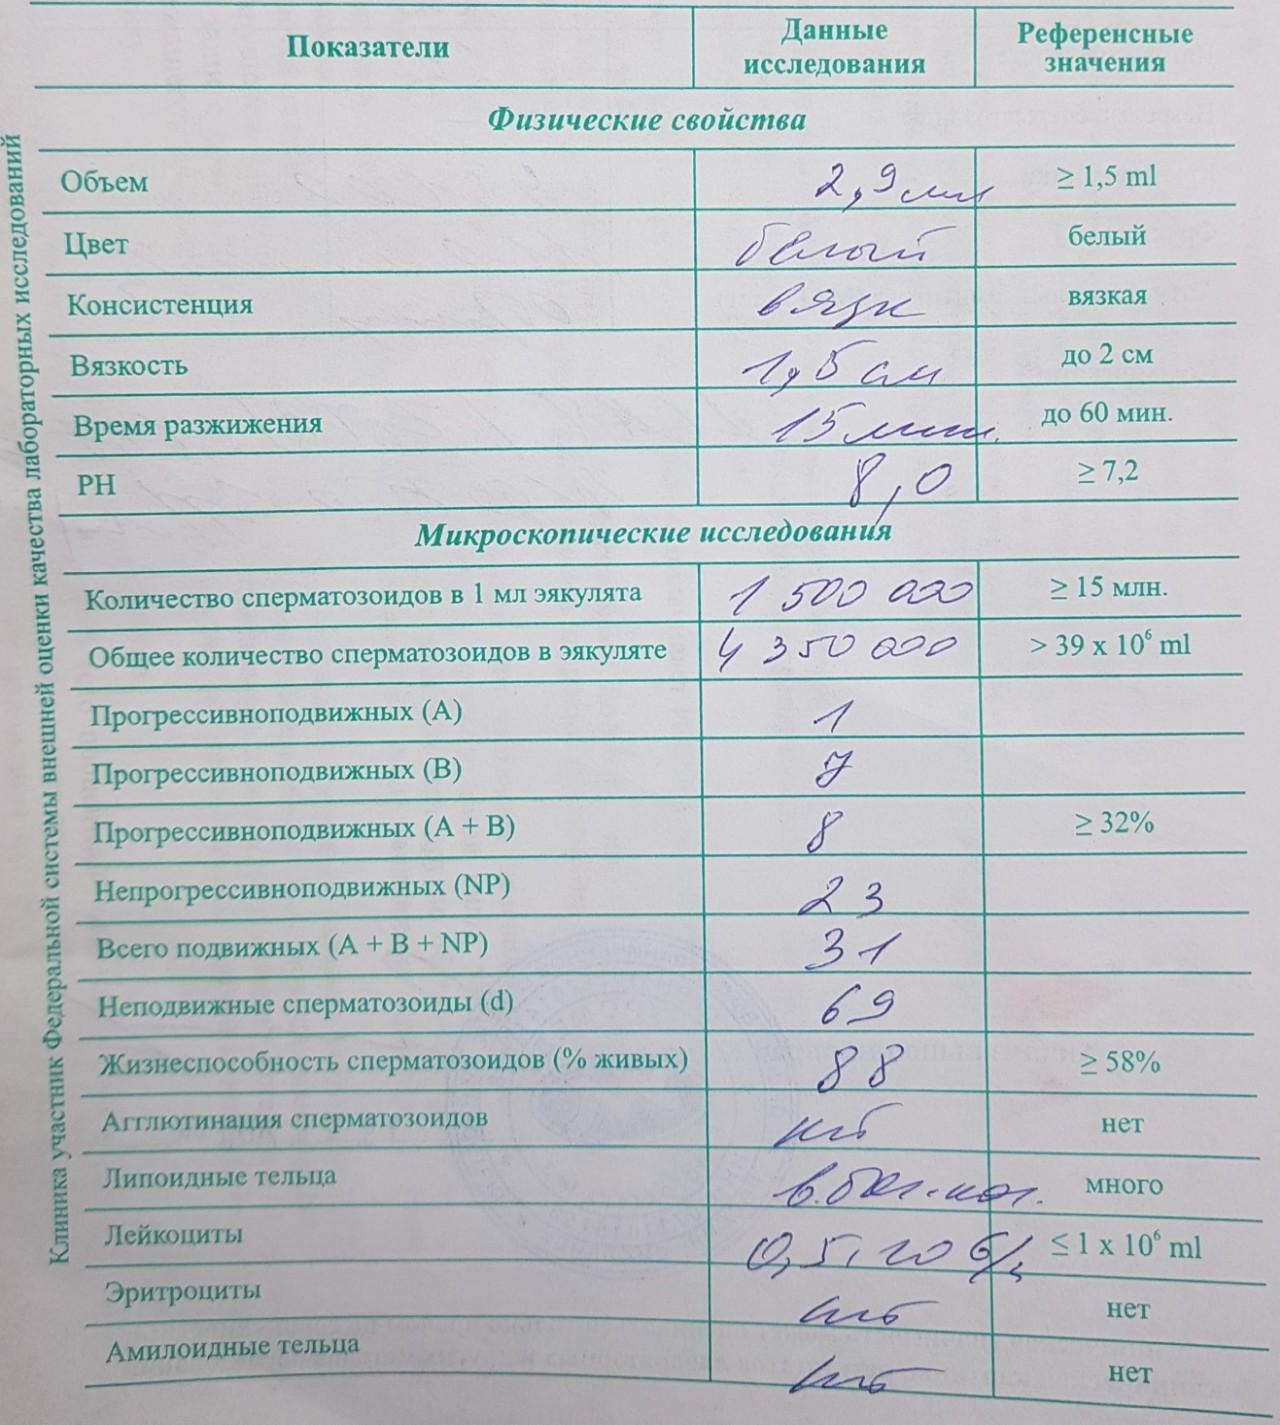 Показатели Данные исследования Референсные значения
Физические свойства
Объем 2,9 мл ≥ 1,5 ml
Цвет белый белый
Консистенция вязк вязкая
Вязкость 1,5 см до 2 см
Время разжижения 15 мин. до 60 мин.
РН 8,0 ≥ 7,2
Микроскопические исследования
Количество сперматозоидов в 1 мл эякулята 1 500 000 ≥ 15 млн.
Общее количество сперматозоидов в эякуляте 4 350 000 > 39 х 10⁶ ml
Прогрессивноподвижных (А) 1
Прогрессивноподвижных (В) 7
Прогрессивноподвижных (А + В) 8 ≥ 32%
Непрогрессивноподвижных (NP) 23
Всего подвижных (А + В + NP) 31
Неподвижные сперматозоиды (d) 69
Жизнеспособность сперматозоидов (% живых) 88 ≥ 58%
Агглютинация сперматозоидов нет нет
Липоидные тельца много
Лейкоциты ≤ 1 х 10⁶ ml
Эритроциты нет нет
Амилоидные тельца нет нет
Клиника участник Федеральной системы внешней оценки качества лабораторных исследований